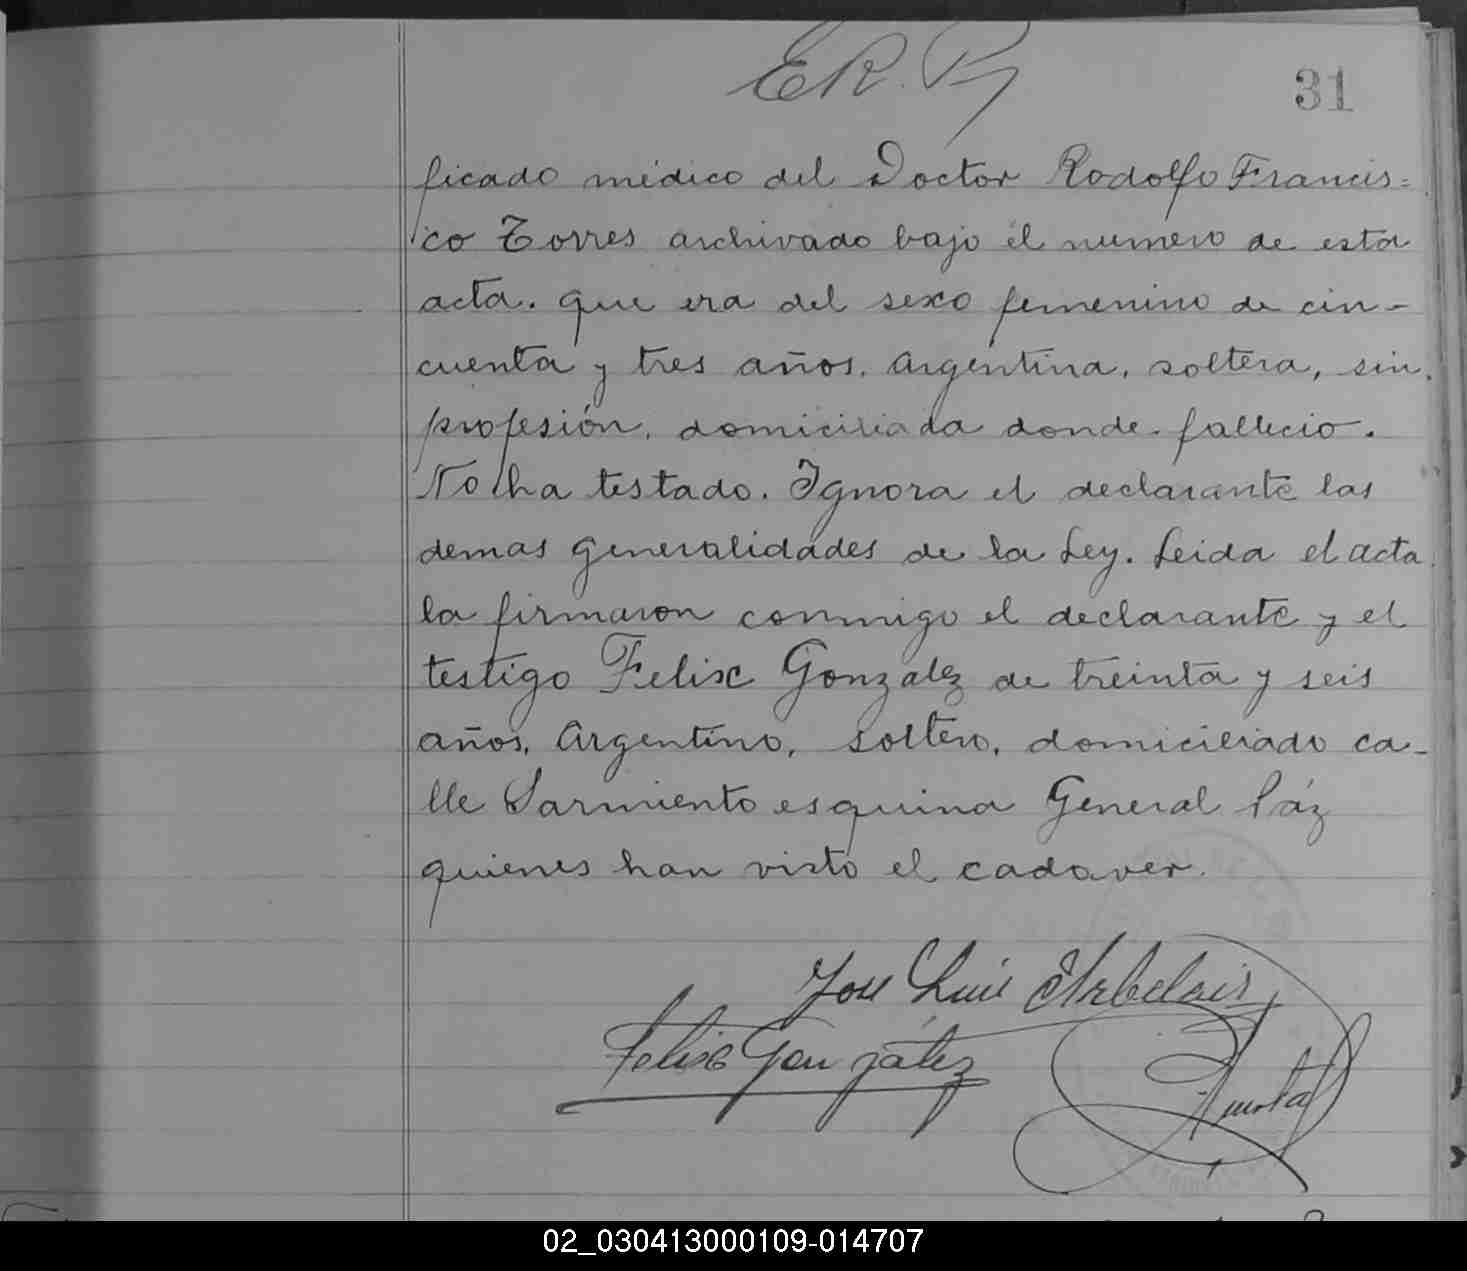 E.R.P.
31
ficado médico del Doctor Rodolfo Francis=
co Torres archivado bajo el numero de esta
acta. que era del sexo femenino de cin-
cuenta y tres años, Argentina, soltera, sin
profesión, domiciliada donde falleció.
No ha testado. Ignora el declarante las
demas generalidades de la Ley. Leida el acta
la firmaron conmigo el declarante y el
testigo Felix Gonzalez de treinta y seis
años, Argentino, soltero, domiciliado ca-
lle Sarmiento esquina General Páz
quienes han visto el cadaver.
Jose Luis Arbelais
Felix González
02_030413000109-014707